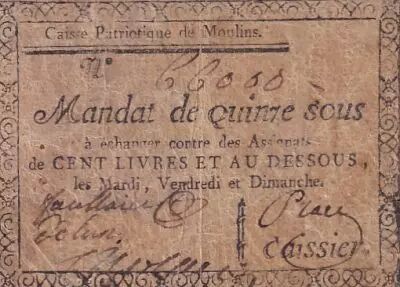 Caisse Patriotique de Moulins.
N°
Mandat de quinze sous
à échanger contre des Assignats
de CENT LIVRES ET AU DESSOUS,
les Mardi, Vendredi et Dimanche.
Caissier